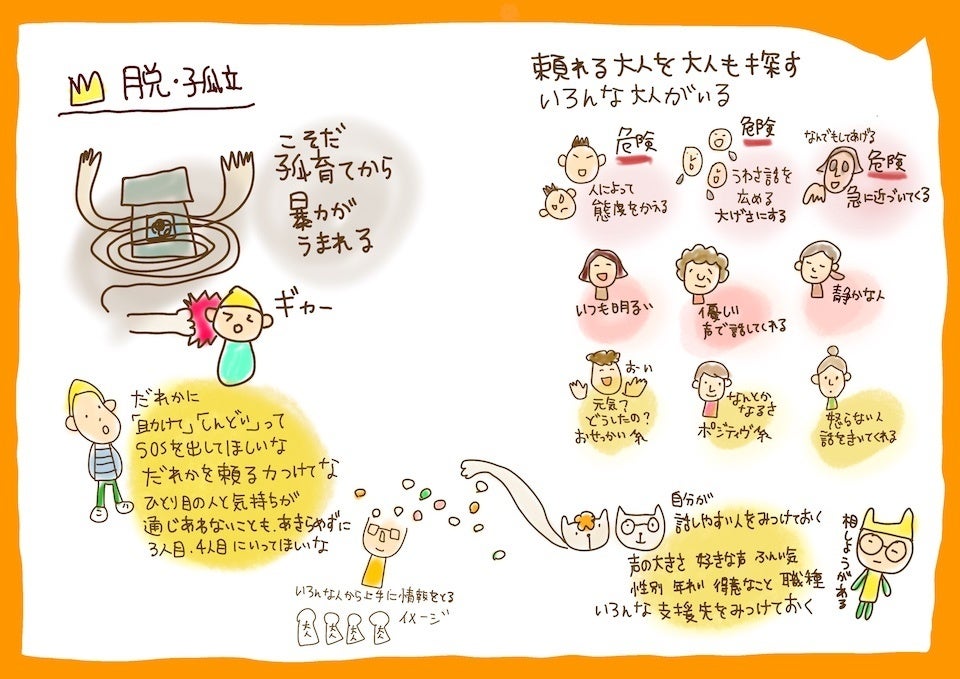 脱・孤立
こそだ
孤育てから
暴力が
うまれる
ギャー
だれかに
「助けて」「しんどい」って
SOSを出してほしいな
だれかを頼る力つけてな
ひとり目の人と気持ちが
通じあわないことも、あきらめずに
3人目、4人目にいってほしいな
いろんな人から上手に情報をとる
イメージ
大 大 大 大
頼れる大人を大人も探す
いろんな大人がいる
危険
人によって
態度をかえる
危険
うわさ話を
広める
大げさにする
なんでもしてあげる
危険
急に近づいてくる
いつも明るい
優しい
声で話してくれる
静かな人
おーい
元気?
どうしたの?
おせっかい系
なんとか
なるさ
ポジティヴ系
怒らない人
話をきいてくれる
自分が
話しやすい人をみつけておく
声の大きさ 好きな声 ふんい気
性別 年れい 得意なこと 職種
いろんな支援先をみつけておく
相しょうがある